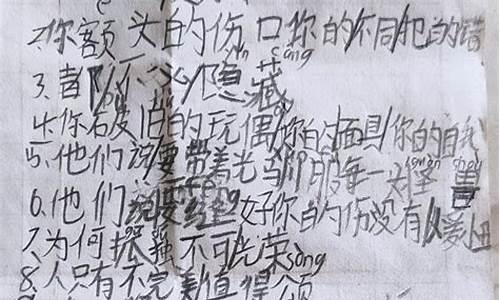 2.你额头的伤口你的不同犯的错
3.都不必隐藏 cáng
4.你破旧的玩偶你的面具你的自我
5.他们说要带着光驯服每一头怪兽
6.他们说要缝好你的伤没有人爱
7.为何孤独不可光荣
8.人只有不完美值得颂 sòng